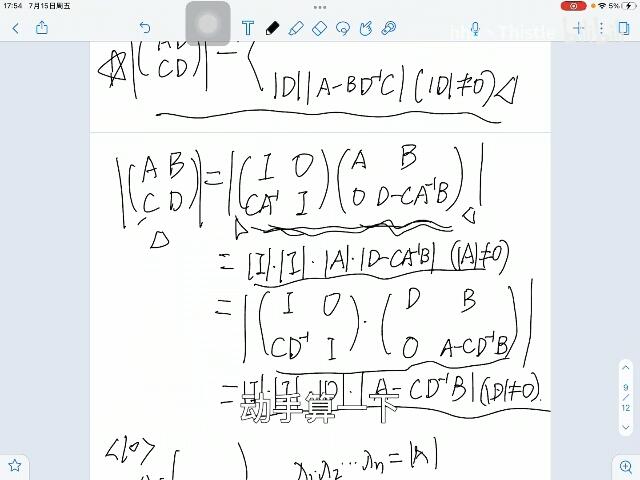 17:54 7月15日周五 5%
|(A B
C D)| = {
|D||A-BD⁻¹C| (|D|≠0)
|(A B
C D)| = |(I O
CA⁻¹ I)(A B
O D-CA⁻¹B)|
= |I|·|I|·|A|·|D-CA⁻¹B| (|A|≠0)
= |(I O
CD⁻¹ I)·(D B
O A-CD⁻¹B)|
= |I|·|I|·|D|·|A-CD⁻¹B| (|D|≠0).
动手算一下
9
/
12
<10>
λ₁·λ₂…λn = |A|